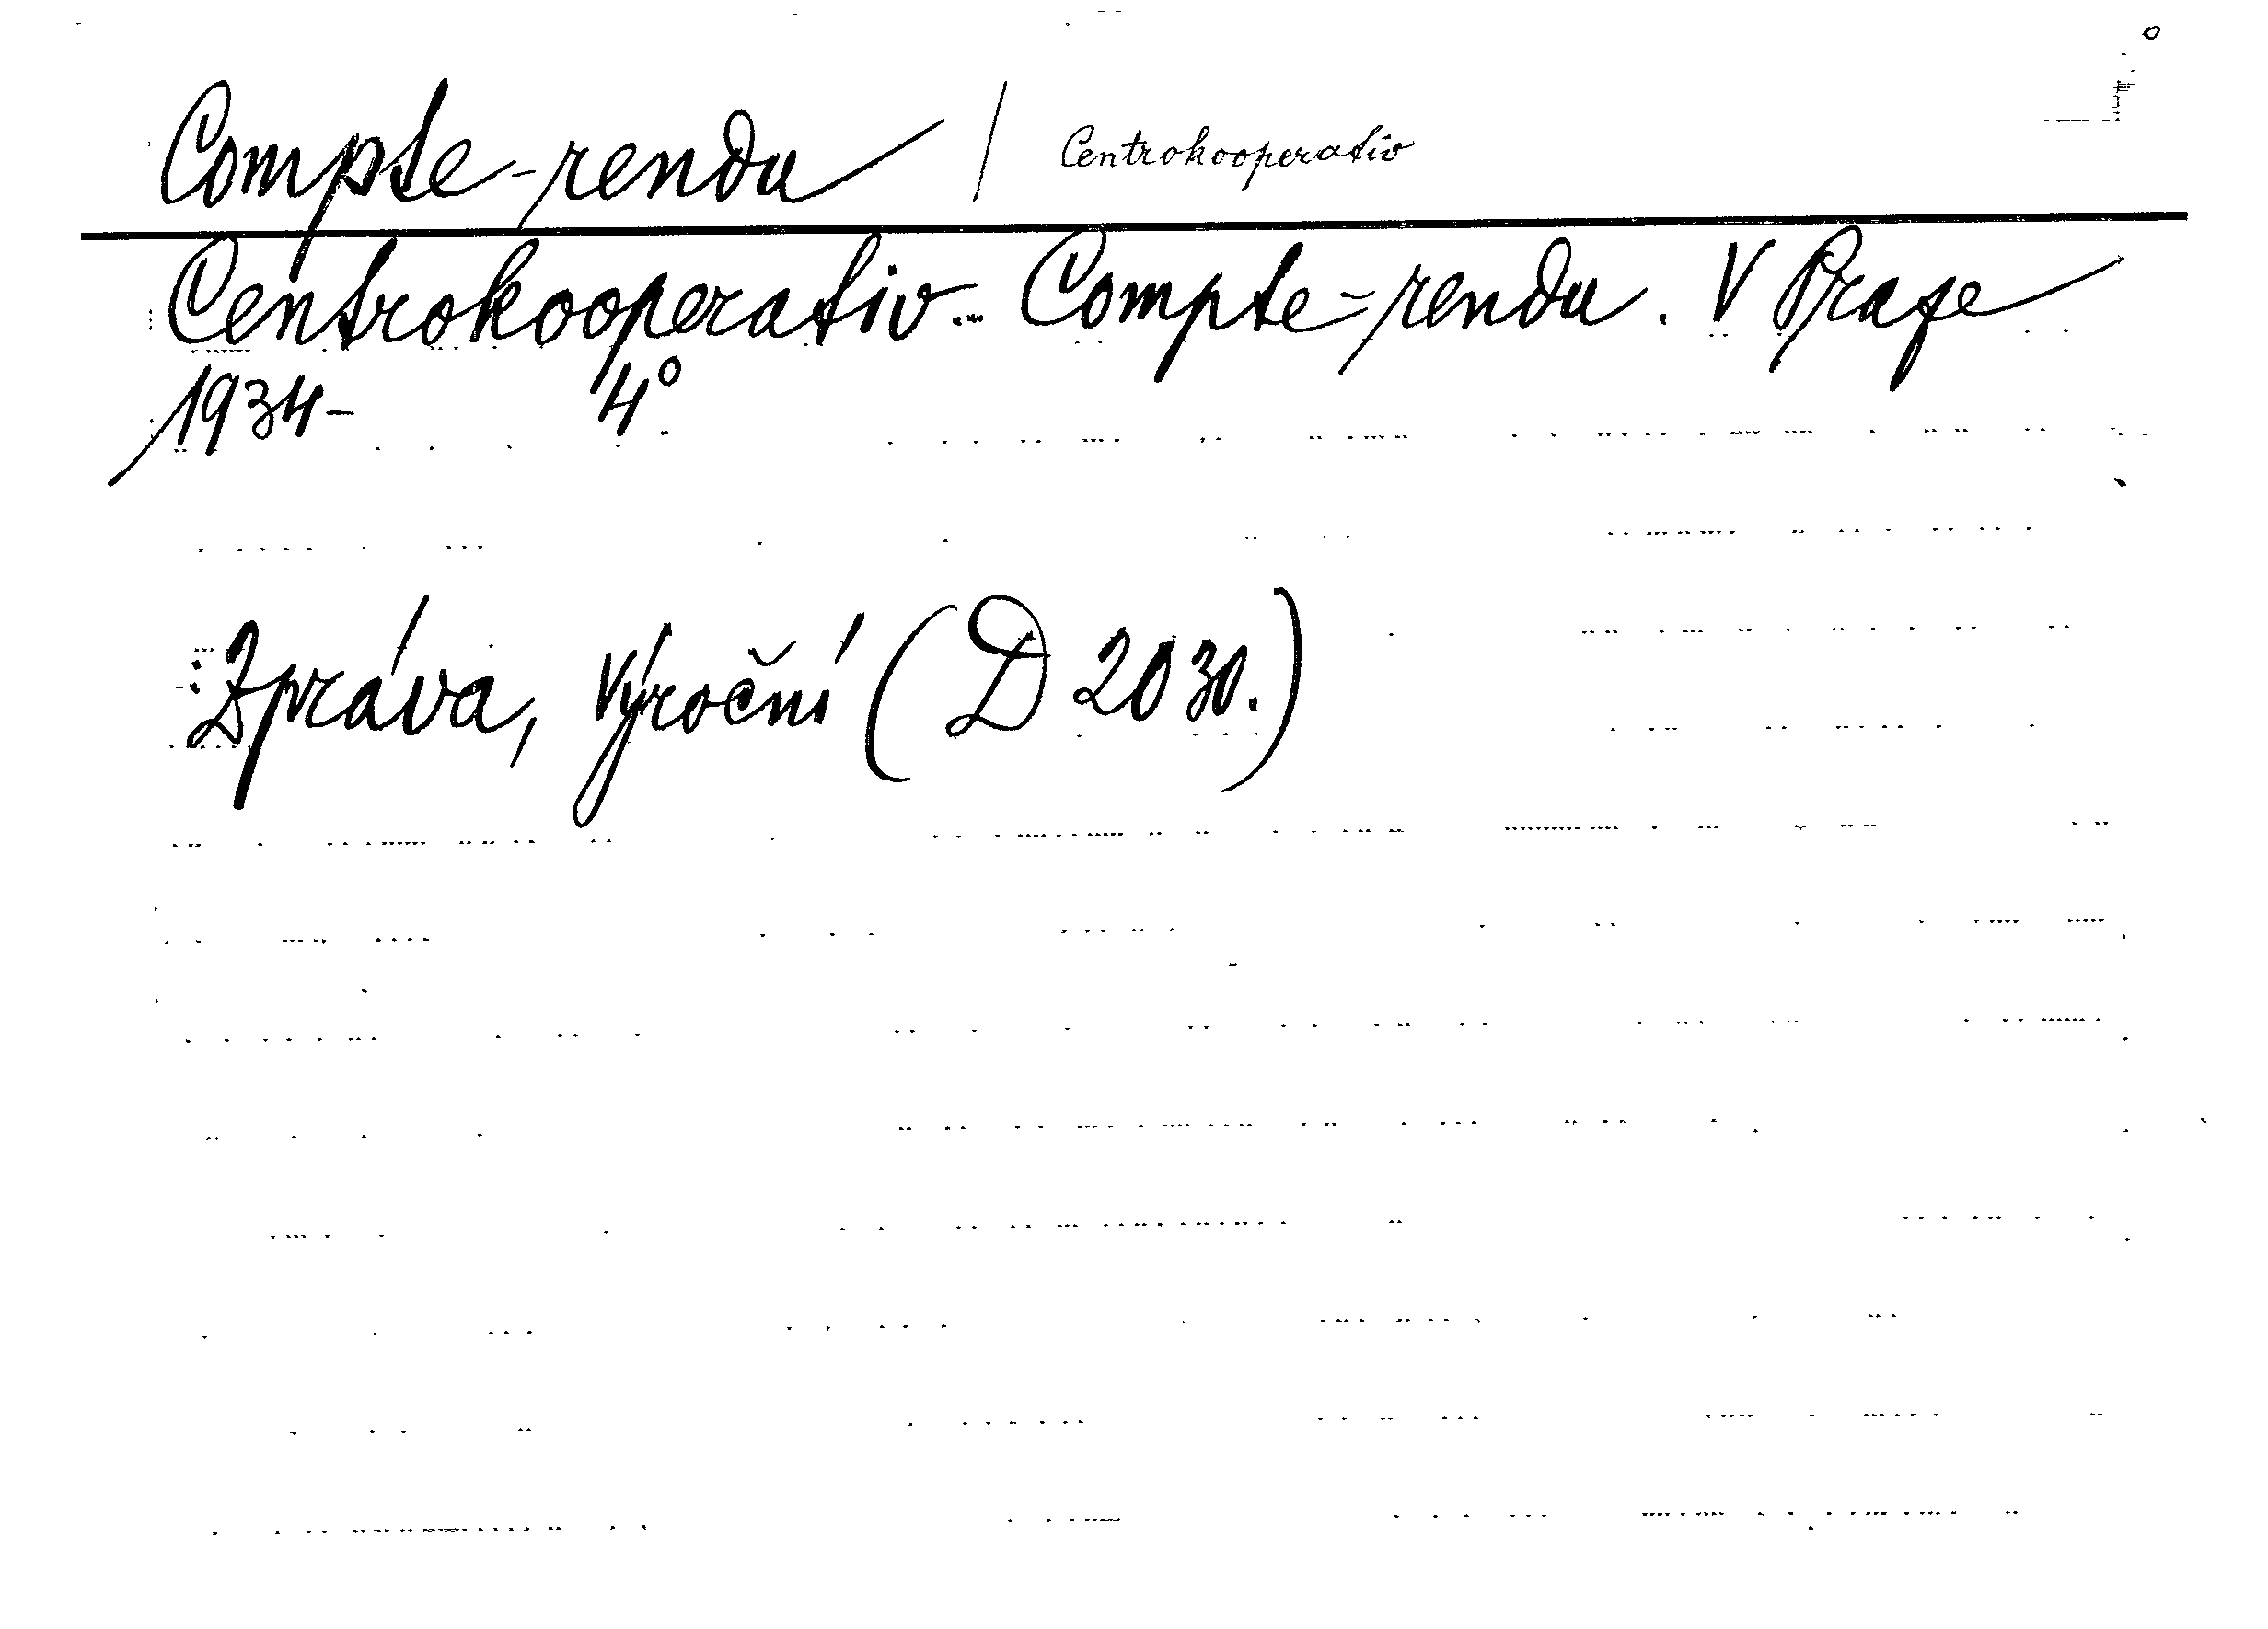 Compte-rendu / Centrokooperativ
Centrokooperativ. Compte-rendu. V Praze
1934- 4°
Zpráva, výroční (D 2030.)